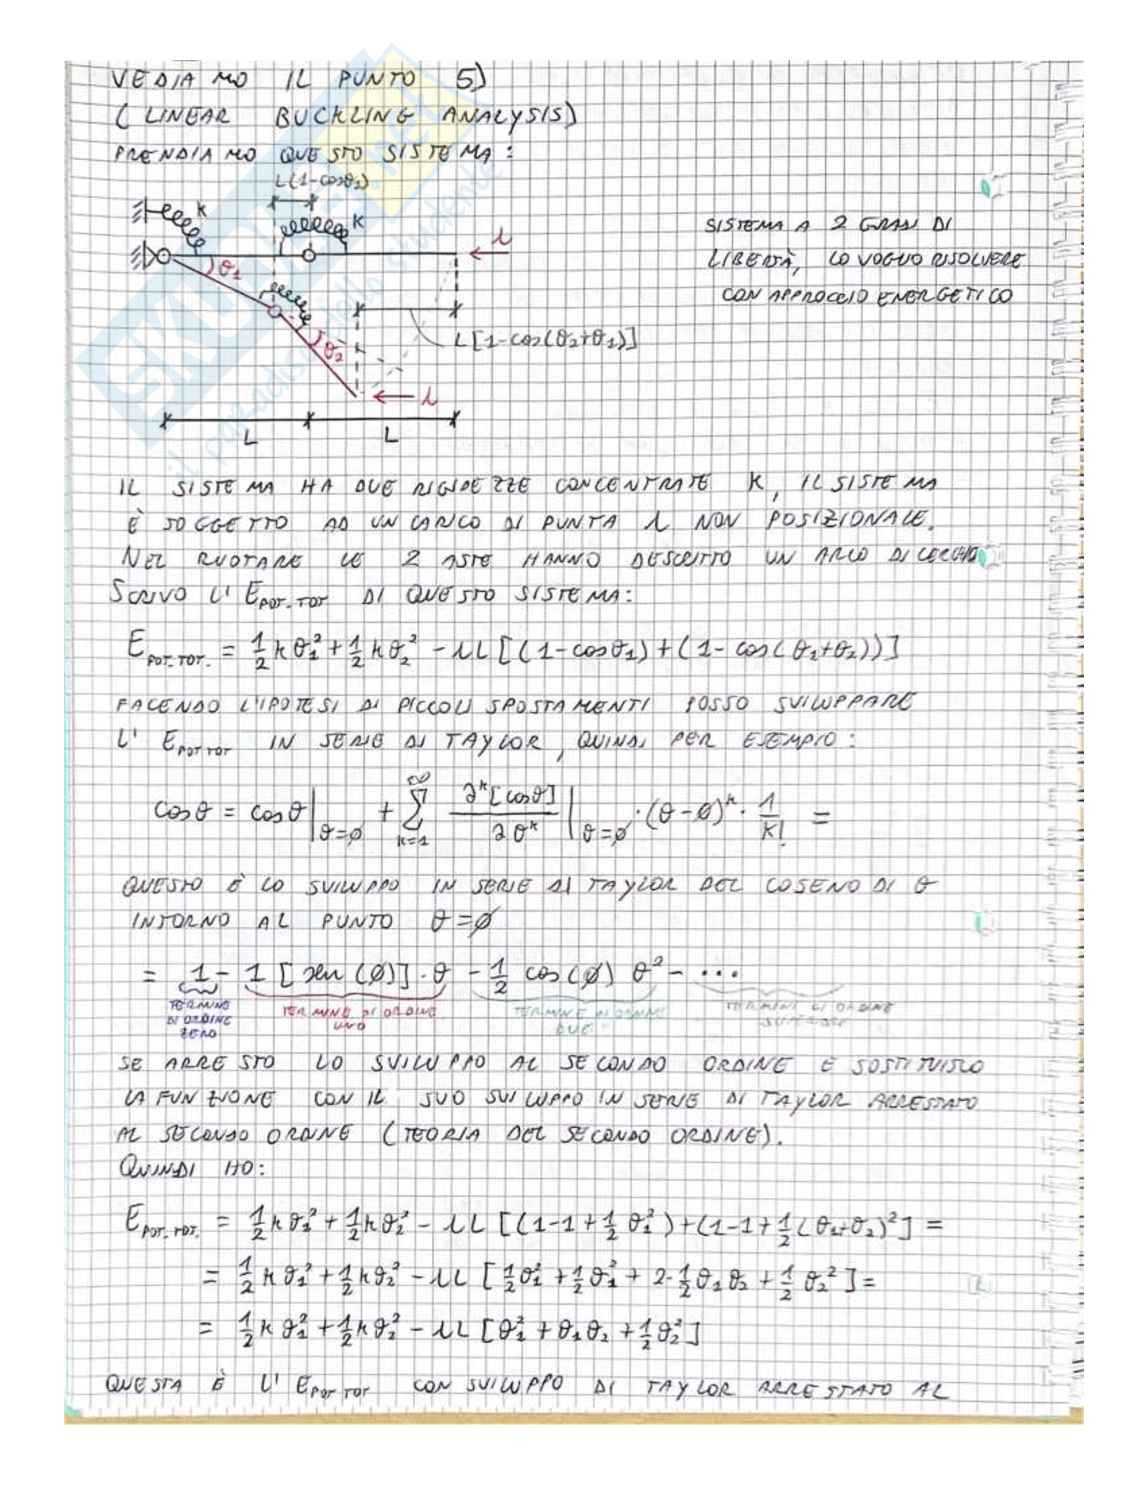 VEDIAMO IL PUNTO 5)
(LINEAR BUCKLING ANALYSIS)
PRENDIAMO QUESTO SISTEMA:
L(1-cosθ₂)
K
K
λ
θ₁
SISTEMA A 2 GRADI DI
LIBERTÀ, LO VOGLIO RISOLVERE
CON APPROCCIO ENERGETICO
L[1-cos(θ₂+θ₁)]
θ₂
λ
L
L
IL SISTEMA HA DUE RIGIDEZZE CONCENTRATE K, IL SISTEMA
È SOGGETTO AD UN CARICO DI PUNTA λ NON POSIZIONALE.
NEL RUOTARE LE 2 ASTE HANNO DESCRITTO UN ARCO DI CERCHIO
SCRIVO L' E_POT.TOT DI QUESTO SISTEMA:
E_POT.TOT. = ½kθ₁² + ½kθ₂² - λL[(1-cosθ₁)+(1-cos(θ₁+θ₂))]
FACENDO L'IPOTESI DI PICCOLI SPOSTAMENTI POSSO SVILUPPARE
L' E_POT TOT IN SERIE DI TAYLOR, QUINDI PER ESEMPIO:
cosθ = cosθ|_θ=∅ + Σ_{k=1}^∞ ∂ᵏ[cosθ]/∂θᵏ|_θ=∅ · (θ-∅)ᵏ · 1/k! =
QUESTO È LO SVILUPPO IN SERIE DI TAYLOR DEL COSENO DI θ
INTORNO AL PUNTO θ=∅
= 1 - 1[sen(∅)]·θ - ½ cos(∅) θ² - ...
TERMINE DI ORDINE ZERO
TERMINE DI ORDINE UNO
TERMINE DI ORDINE DUE
TERMINI DI ORDINE SUPERIORE
SE ARRESTO LO SVILUPPO AL SECONDO ORDINE E SOSTITUISCO
LA FUNZIONE CON IL SUO SVILUPPO IN SERIE DI TAYLOR ARRESTATO
AL SECONDO ORDINE (TEORIA DEL SECONDO ORDINE).
QUINDI HO:
E_POT.TOT. = ½kθ₁² + ½kθ₂² - λL[(1-1+½θ₁²)+(1-1+½(θ₁+θ₂)²] =
= ½kθ₁² + ½kθ₂² - λL[½θ₁² + ½θ₁² + 2·½θ₁θ₂ + ½θ₂²] =
= ½kθ₁² + ½kθ₂² - λL[θ₁² + θ₁θ₂ + ½θ₂²]
QUESTA È L' E_POT TOT CON SVILUPPO DI TAYLOR ARRESTATO AL